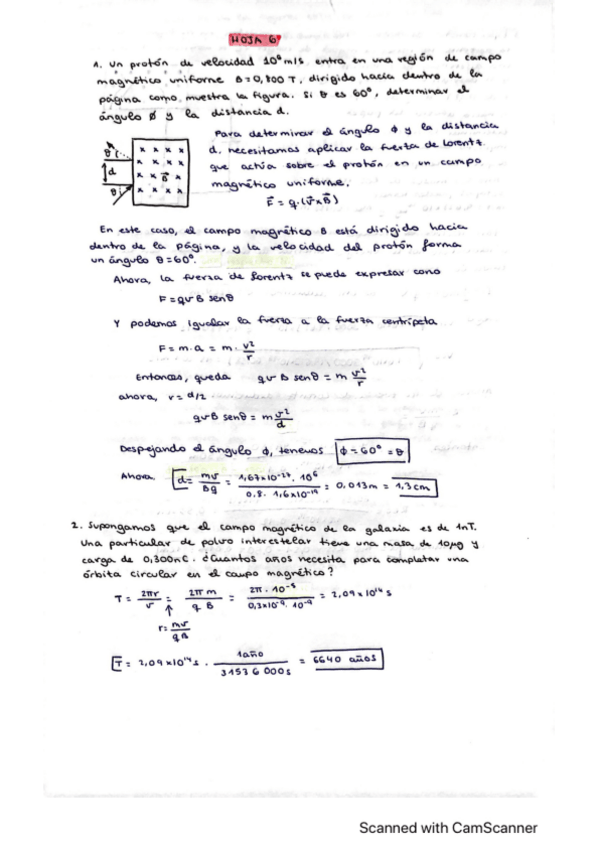 HOJA 6
1. Un protón de velocidad 10⁶ m/s entra en una región de campo
magnético uniforme B=0,800 T, dirigido hacia dentro de la
página como muestra la figura. Si θ es 60°, determinar el
ángulo φ y la distancia d.
Para determinar el ángulo φ y la distancia
d, necesitamos aplicar la fuerza de Lorentz
que actúa sobre el protón en un campo
magnético uniforme.
F⃗ = q·(v⃗xB⃗)
x x x x
x x x x
x x B⃗ x
x x x x
d
θ
En este caso, el campo magnético B está dirigido hacia
dentro de la página, y la velocidad del protón forma
un ángulo θ=60°.
Ahora, la fuerza de Lorentz se puede expresar como
F=qvB senθ
Y podemos igualar la fuerza a la fuerza centrípeta
F = m·a = m · v²/r
Entonces, queda qvB senθ = m v²/r
ahora, r = d/2
qvB senθ = m v²/d
Despejando el ángulo φ, tenemos φ = 60° = θ
Ahora, d = mv/Bq = 1,67x10⁻²⁷ · 10⁶/0.8 · 1,6x10⁻¹⁹ = 0,013m = 1,3cm
2. Supongamos que el campo magnético de la galaxia es de 1nT.
Una particular de polvo interestelar tiene una masa de 10μg y
carga de 0,300nC. ¿Cuantos años necesita para completar una
órbita circular en el campo magnético?
T = 2πr/v = 2π m/q B = 2π · 10⁻⁸/0,3x10⁻⁹ · 10⁻⁹ = 2,09x10¹⁴ s
r = mv/qB
T = 2,09x10¹⁴ s · 1año/31536000s = 6640 años
Scanned with CamScanner